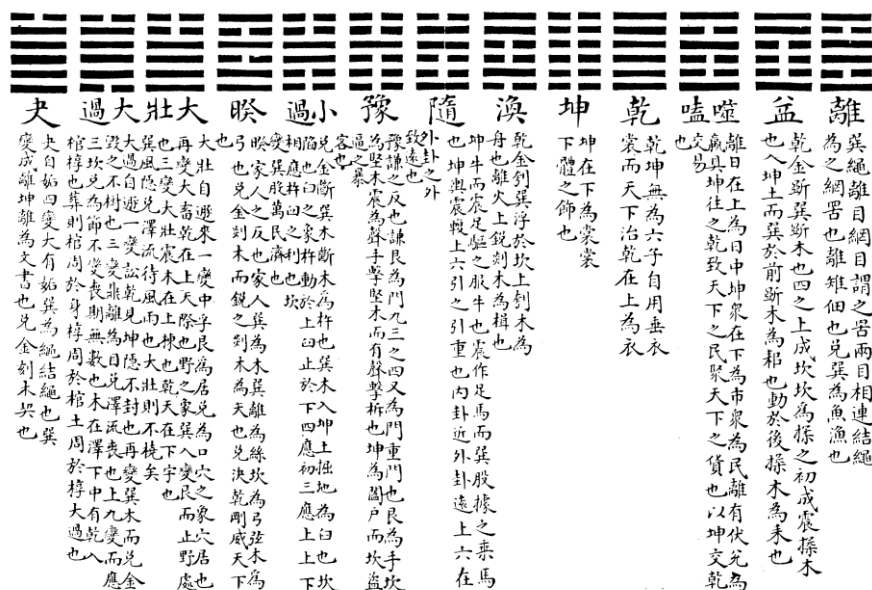 離
巽繩離目網目謂之罟兩目相連結繩
為之網罟也離雉佃也兌巽為魚漁也
益
乾金斲巽斲木也四之上成坎坎為揉之初成震揉木
也入坤土而巽於前斲木為耜也動於後揉木為耒也
噬嗑
離日在上為日中坤衆在下為市衆為民離有伏兌為
羸貝坤往之乾致天下之民聚天下之貨也以坤交乾
交易
也
乾
乾坤無為六子自用垂衣
裳而天下治乾在上為衣
坤
坤在下為裳裳
下體之飾也
渙
乾金刳巽浮於坎上刳木為
舟也離火上銳剡木為楫也
隨
坤牛而震足驅之服牛也震作足馬而巽股據之乘馬
也坤輿震輹上六引之引重也内卦近外卦遠上六在
外卦之外
致遠也
豫
豫謙之反也謙艮為門九三之四又為門重門也艮為手坎
為堅木震為聲手擊堅木而有聲擊柝也坤為闔户而坎盜
逼之暴
客也
小過
兌金斷巽木斷木為杵也巽木入坤土掘地為臼也坎
陷也臼之象杵動於上臼止於下四應初三應上上下
相應杵臼之利也坎
變巽股萬民濟也
睽
睽家人之反也家人巽為木巽離為絲坎為弓弦木為
弓也兌金剡木而銳之剡木為矢也兌決乾剛威天下
也
大壯
大壯自遯來一變中孚艮為居兌為口穴之象穴居也
再變大畜乾在上天際也野之象巽入變艮而止野處
也三變大壯震木在上棟也乾天在下宇也
巽風隱兌澤流待風雨也大壯則不橈矣
大過
大過自遯一變訟乾見坤隱不封也再變巽木而兌金
毀之不樹也三變鼎離為目兌澤流喪也上九變而應
三坎兌為節不變喪期無數也木在澤下中有乾人
棺椁也葬則棺周於身椁周於棺土周於椁大過也
夬
夬自姤四變大有姤巽為繩結繩也巽
變成離坤離為文書也兌金刻木契也